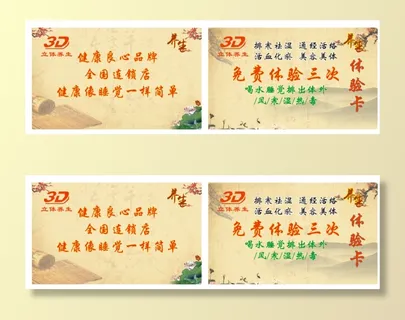 3D
立体养生
养生
健康良心品牌
全国连锁店
健康像睡觉一样简单
3D
立体养生
养生
排寒祛湿 通经活络
活血化瘀 美容美体
免费体验三次
喝水睡觉排出体外
/风/寒/湿/热/毒
体验卡
3D
立体养生
养生
健康良心品牌
全国连锁店
健康像睡觉一样简单
3D
立体养生
养生
排寒祛湿 通经活络
活血化瘀 美容美体
免费体验三次
喝水睡觉排出体外
/风/寒/湿/热/毒
体验卡